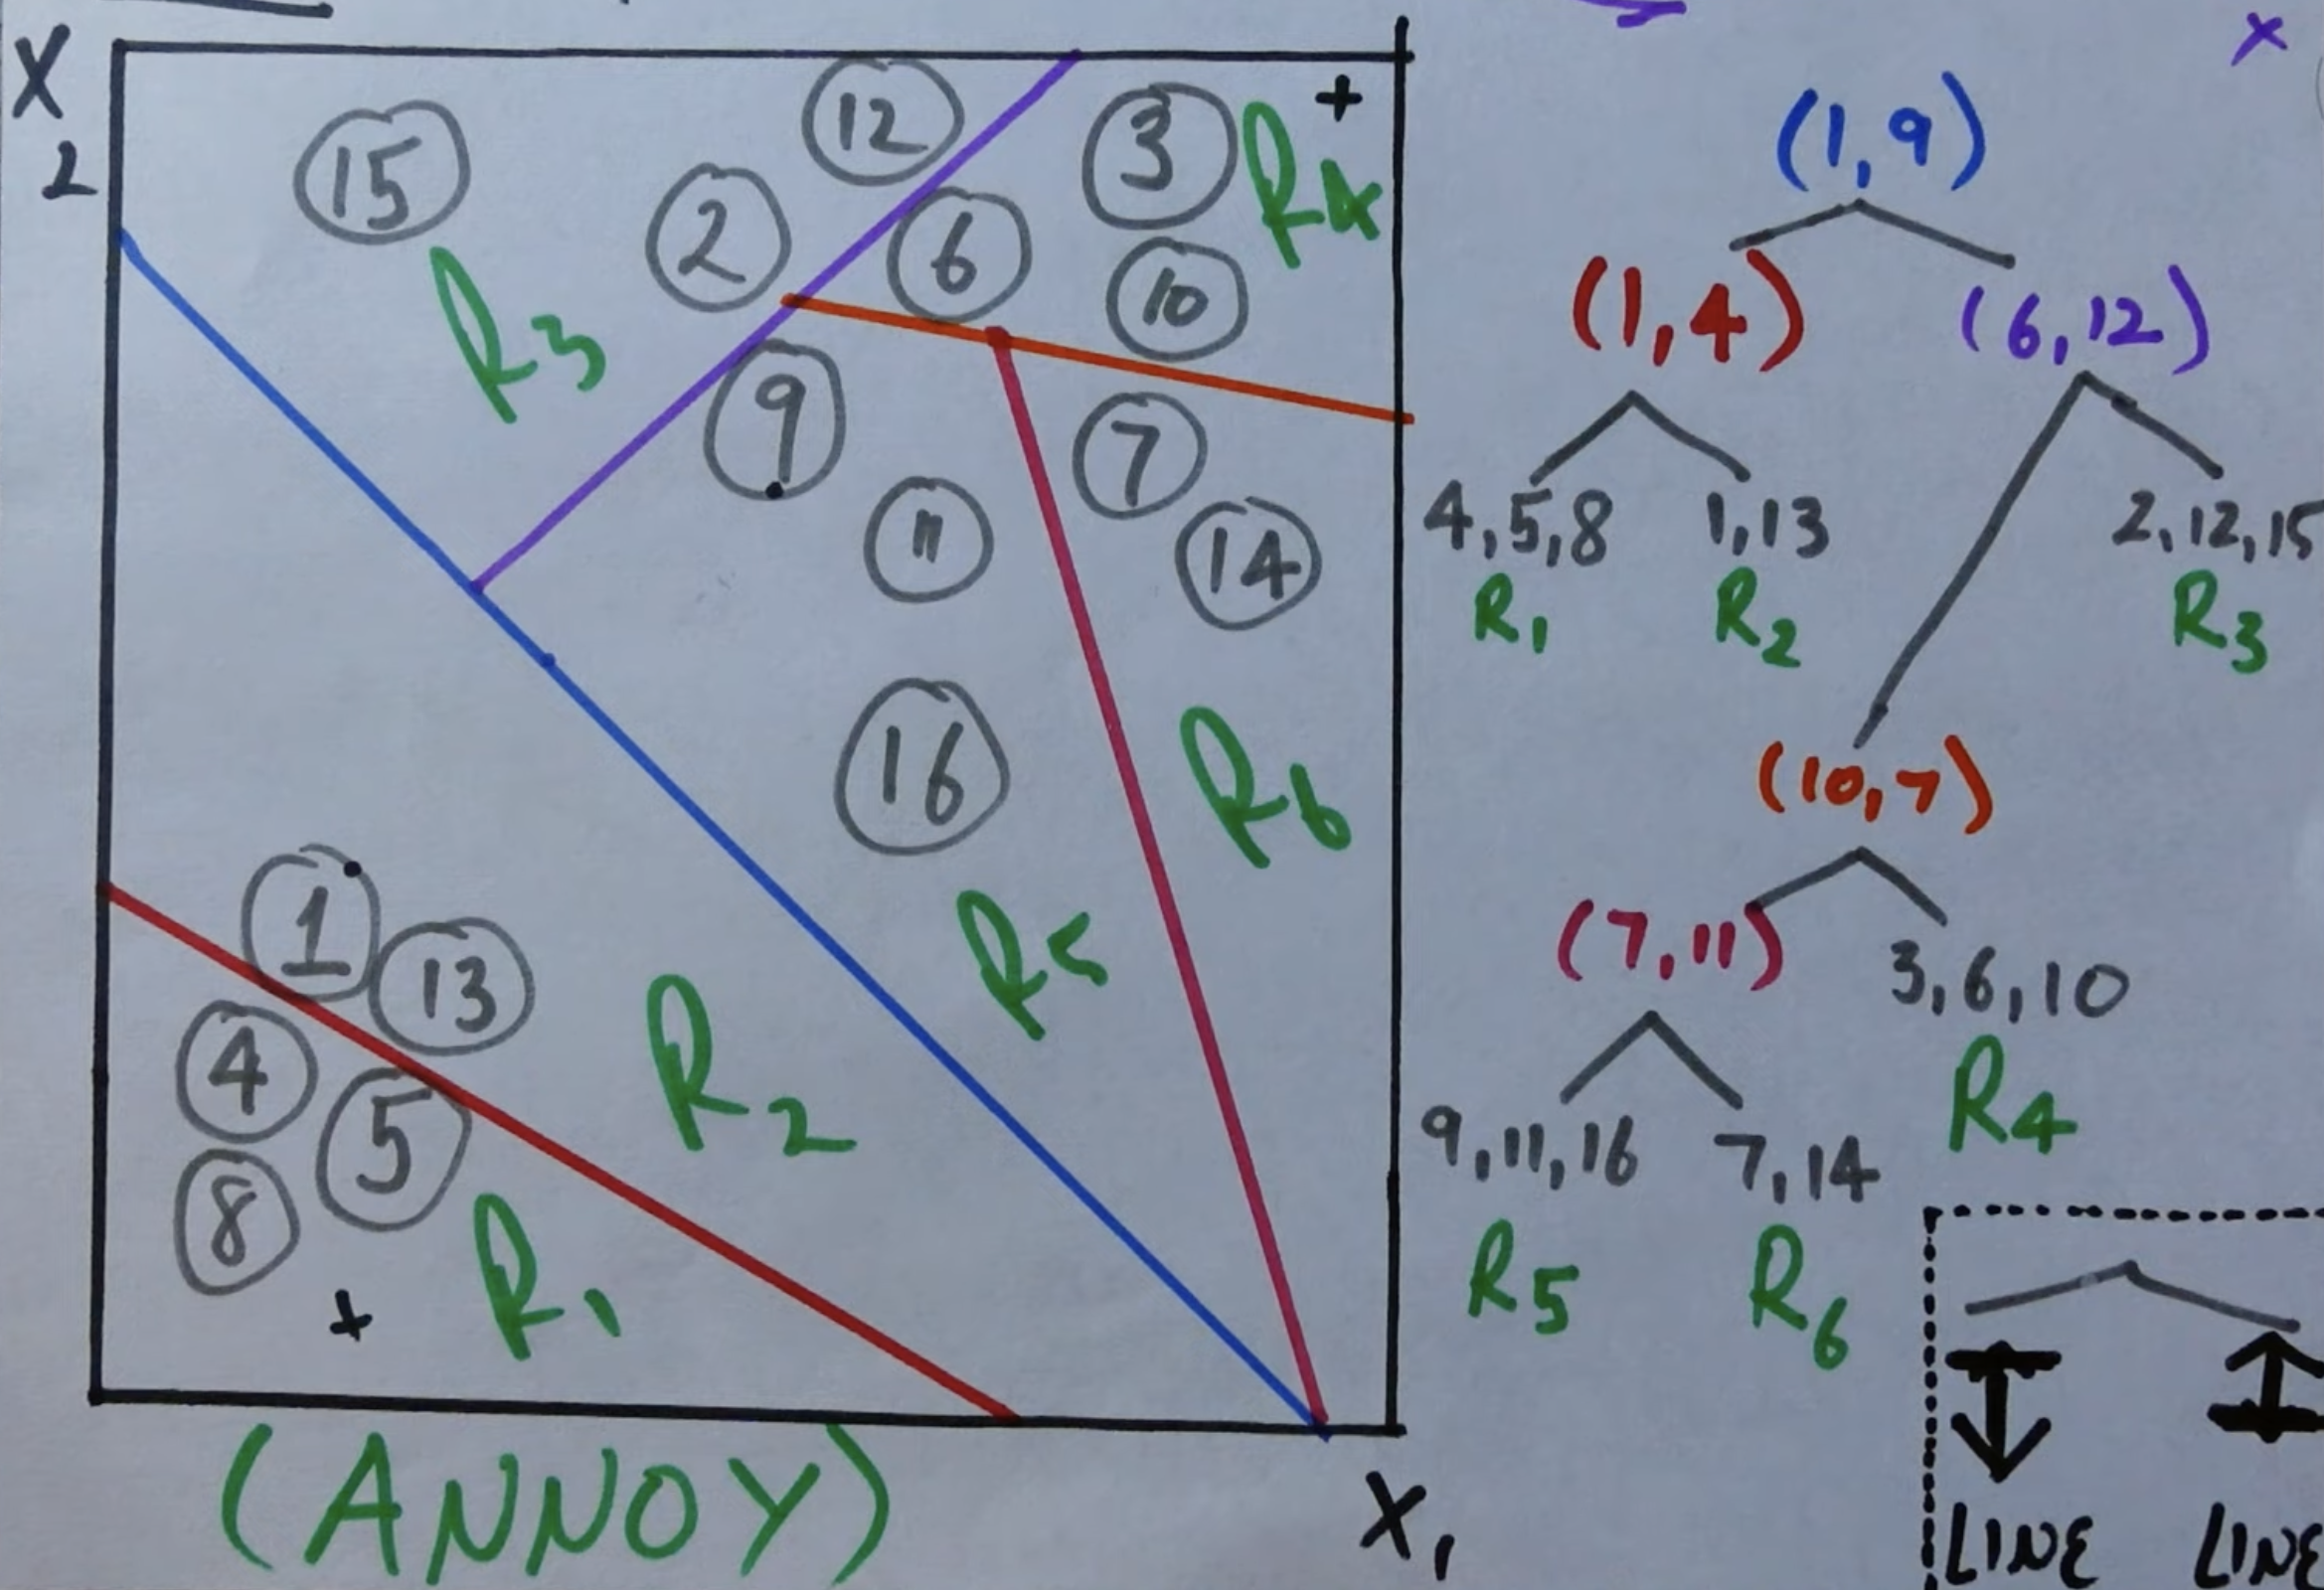 X
2
15
12
3
+
R4
2
6
10
R3
9
7
11
14
16
R6
1
13
R5
4
5
R2
8
+
R1
(ANNOY)
X1
x
(1,9)
(1,4)
(6,12)
4,5,8
1,13
2,12,15
R1
R2
R3
(10,7)
(7,11)
3,6,10
R4
9,11,16
7,14
R5
R6
LINE
LINE